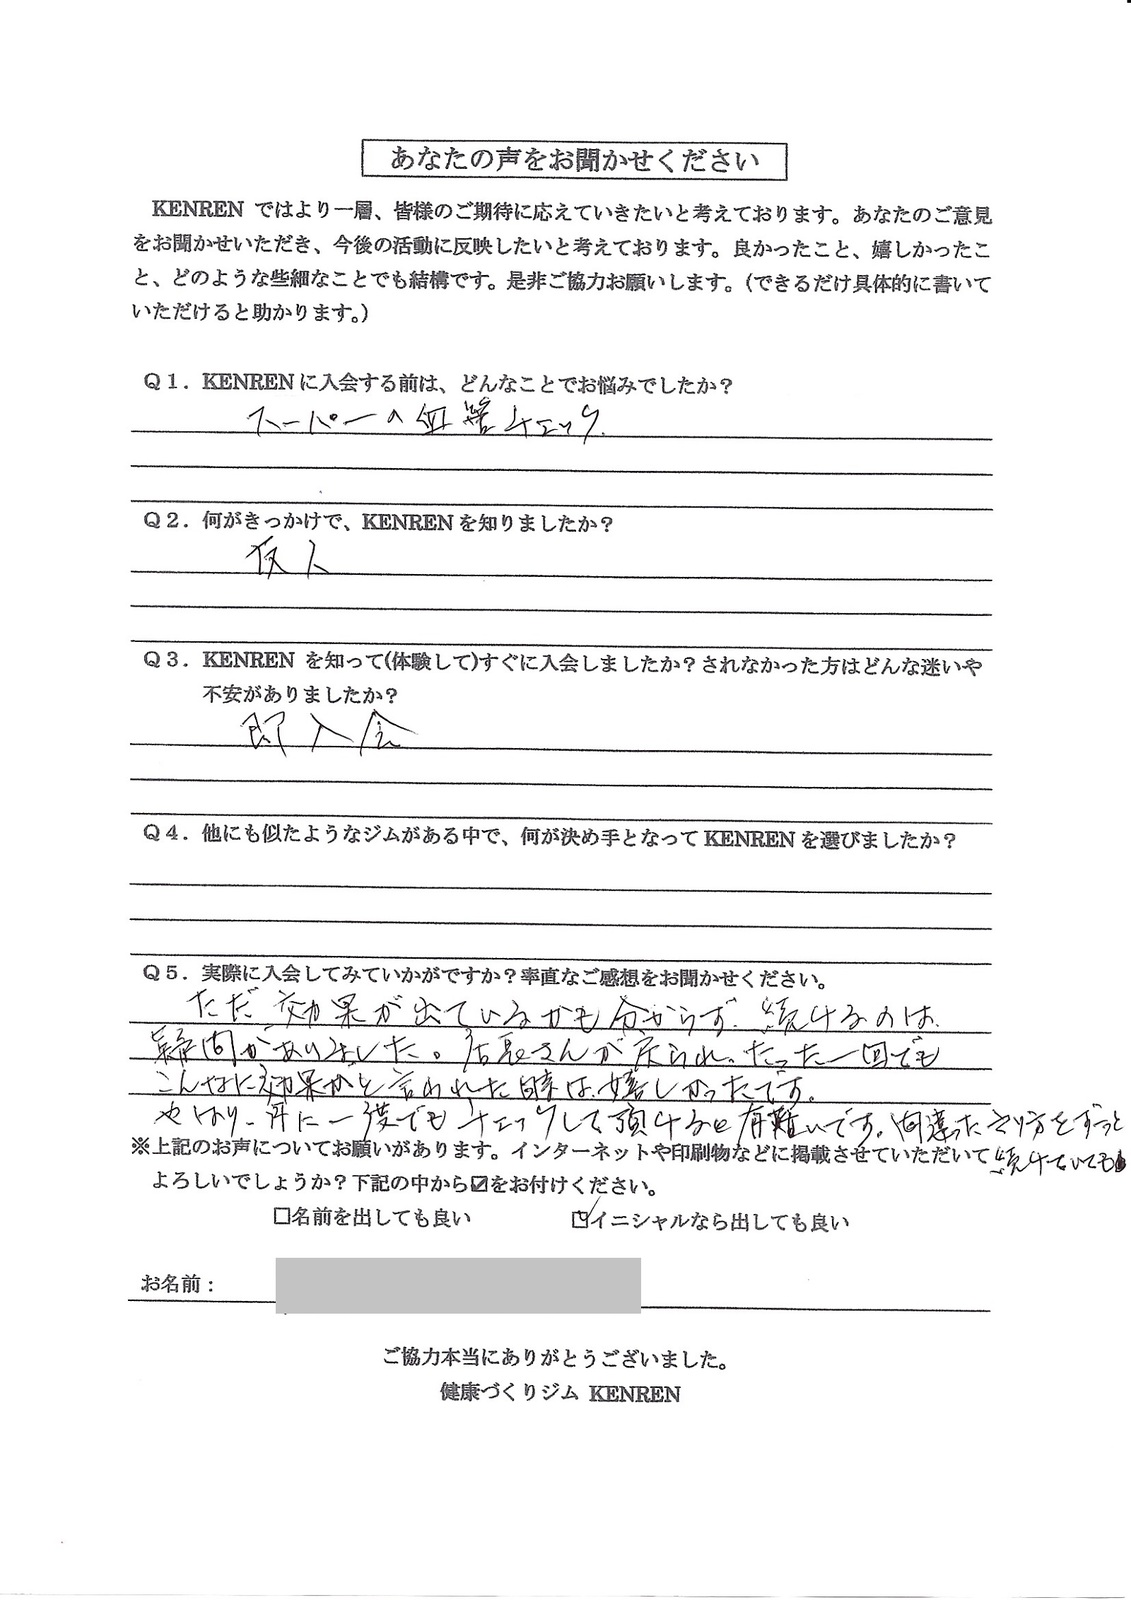 あなたの声をお聞かせください
KENREN ではより一層、皆様のご期待に応えていきたいと考えております。あなたのご意見
をお聞かせいただき、今後の活動に反映したいと考えております。良かったこと、嬉しかったこ
と、どのような些細なことでも結構です。是非ご協力お願いします。（できるだけ具体的に書いて
いただけると助かります。）
Q１．KENRENに入会する前は、どんなことでお悩みでしたか？
スーパーの血管チェック
Q２．何がきっかけで、KENRENを知りましたか？
友人
Q３．KENREN を知って(体験して)すぐに入会しましたか？されなかった方はどんな迷いや
不安がありましたか？
即入会
Q４．他にも似たようなジムがある中で、何が決め手となってKENRENを選びましたか？
Q５．実際に入会してみていかがですか？率直なご感想をお聞かせください。
ただ効果が出ているかも分からず、続けるのは
疑問がありました。店長さんが戻られ、たった一回でも
こんなに効果がと言われた時は、嬉しかったです。
やはり、月に一度でもチェックして頂けると有難いです。間違ったやり方をずっと
続けていても
※上記のお声についてお願いがあります。インターネットや印刷物などに掲載させていただいて
よろしいでしょうか？下記の中から☑をお付けください。
□名前を出しても良い ☑イニシャルなら出しても良い
お名前：
ご協力本当にありがとうございました。
健康づくりジム KENREN